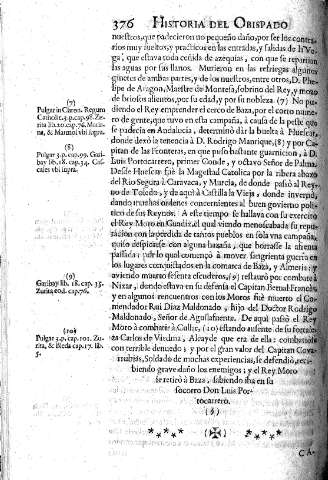 376 HISTORIA DEL OBISPADO
nuestros, que padecieron no pequeño daño, por ser los contra-
rios muy sueltos, y practicos en las entradas, y salidas de la Ve-
ga, que estava toda ceñida de azequias, con que se repartian
las aguas por sus llanos. Murieron en las refriegas algunos
ginetes de ambas partes, y de los nuestros, entre otros, D. Phe-
lipe de Aragon, Maestre de Montesa, sobrino del Rey, y moço
de briosos alientos, por su edad, y por su nobleza (7) No pu-
diendo el Rey emprender el cerco de Baza, por el corto nume-
ro de gente, que tuvo en esta campaña, à causa de la peste que
se padecia en Andalucia, determinò dàr la buelta à Huescar,
donde dexò la tenencia à D. Rodrigo Manrique, (8) y por Ca-
pitan de las Fronteras, en que puso bastante guarnicion, à D.
Luis Portocarrero, primer Conde, y octavo Señor de Palma.
Desde Huescar fuè la Magestad Catolica por la ribera abaxo
del Rio Segura à Caravaca, y Murcia, de donde pasò al Rey-
no de Toledo, y de aqui à Castilla la Vieja, donde invernò,
dando muchas ordenes concernientes al buen govierno politi-
co de sus Reynos. A este tiempo se hallava con su exercito
el Rey Moro en Guadix, el qual viendo menoscabada su repu-
tacion con la perdida de tantos pueblos en sola vna campaña,
quiso despicarse con alguna hazaña, que borrasse la afrenta
passada: por lo qual començò à mover sangrienta guerra en
los lugares conquistados en la comarca de Baza, y Almeria; y
aviendo muerto sesenta escuderos, (9) restaurò por combate à
Nixar, donde estava en su defensa el Capitan Bernal Francès,
y en algunos rencuentros con los Moros fuè muerto el Co-
mendador Rui Diaz Maldonado, hijo del Doctor Rodrigo
Maldonado, Señor de Agusafuenta. De aqui pasò el Rey
Moro à combatir à Cullar, (10) estando ausente de su fortale-
za Carlos de Viedma, Alcayde que era de ella: combatiola
con terrible denuedo; y por el gran valor del Capitan Cova-
rrubias, Soldado de muchas experiencias, se defendiò, reci-
biendo grave daño los enemigos; y el Rey Moro
se retirò à Baza, sabiendo iba en su
socorro Don Luis Por-
tocarrero.
(§)
CA-
(7)
Pulgar in Chron. Regum
Catholic. 3. p. cap. 98. Zu-
rita lib. 20. cap. 76. Maria-
na, & Marmol vbi supra.
(8)
Pulgar 3. p. cap. 99. Gari-
bay lib. 18. cap. 34. Cas-
cales vbi supra.
(9)
Garibay lib. 18. cap. 35.
Zurita tom. 4. cap. 76.
(10)
Pulgar 3. p. cap. 101. Zu-
rita, & Bleda cap. 17. lib.
5.